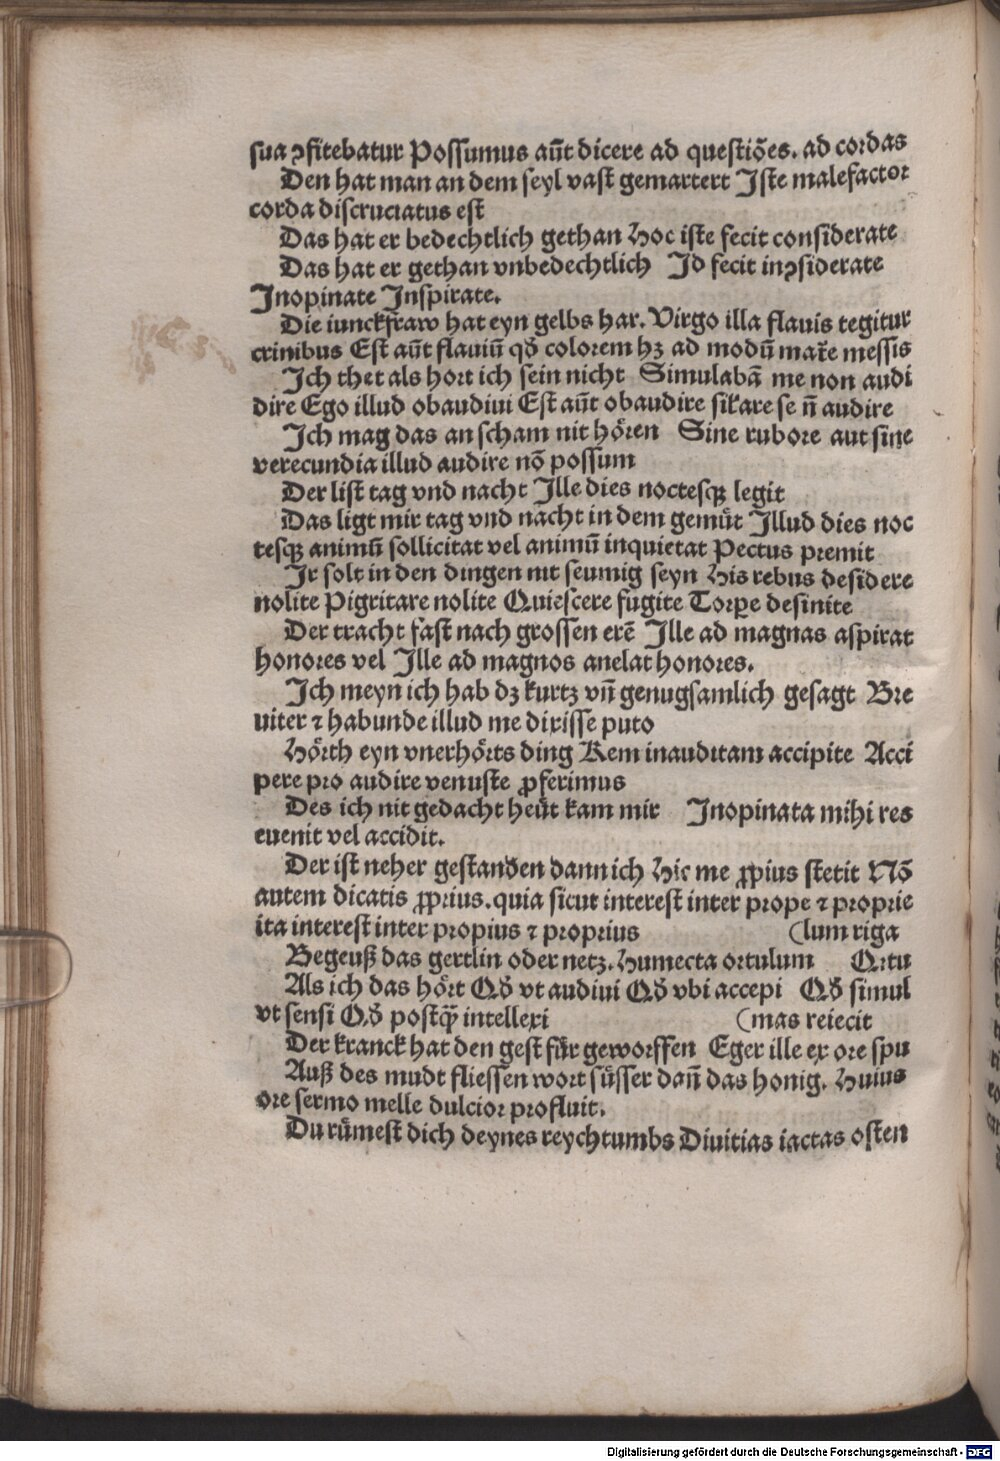 sua ꝯfitebatur Possumus aūt dicere ad questiões. ad cordas
Den hat man an dem seyl vast gemartert Iste malefactor
corda discruciatus est
Das hat er bedechtlich gethan Hoc iste fecit considerate
Das hat er gethan vnbedechtlich Id fecit inꝯsiderate
Inopinate Inspirate.
Die iunckfraw hat eyn gelbs har. Virgo illa flauis tegitur
crinibus Est aūt flauiū qđ colorem hꝫ ad modū mat̄e messis
Ich thet als hort ich sein nicht Simulabā me non audi
dire Ego illud obaudiui Est aūt obaudire sikare se n̄ audire
Ich mag das an scham nit hören Sine rubore aut sine
verecundia illud audire nō possum
Der list tag vnd nacht Ille dies noctesqꝫ legit
Das ligt mir tag vnd nacht in dem gemüt Illud dies noc
tesqꝫ animū sollicitat vel animū inquietat Pectus premit
Ir solt in den dingen nit seumig seyn His rebus desidere
nolite Pigritare nolite Quiescere fugite Torꝑe desinite
Der tracht fast nach grossen erē Ille ad magnas aspirat
honores vel Ille ad magnos anelat honores.
Ich meyn ich hab dꝫ kurtz vn̄ genugsamlich gesagt Bre
uiter ⁊ habunde illud me dixisse puto
Hörth eyn vnerhörts ding Rem inauditam accipite Acci
pere pro audire venuste ꝓferimus
Des ich nit gedacht heüt kam mir Inopinata mihi res
euenit vel accidit.
Der ist neher gestanden dann ich Hic me ꝓpius stetit Nō
autem dicatis ꝓprius. quia sicut interest inter prope ⁊ proprie
ita interest inter propius ⁊ proprius (lum riga
Begeuß das gertlin oder netz. Humecta ortulum Ortu
Als ich das hört Qđ vt audiui Qđ vbi accepi Qđ simul
vt sensi Qđ postq̄ȝ intellexi (mas reiecit
Der kranck hat den gest für geworffen Eger ille ex ore spu
Auß des mudt fliessen wort süsser dan̄ das honig. Huius
ore sermo melle dulcior profluit.
Du rümest dich deynes reychtumbs Diuitias iactas osten
Digitalisierung gefördert durch die Deutsche Forschungsgemeinschaft - DFG